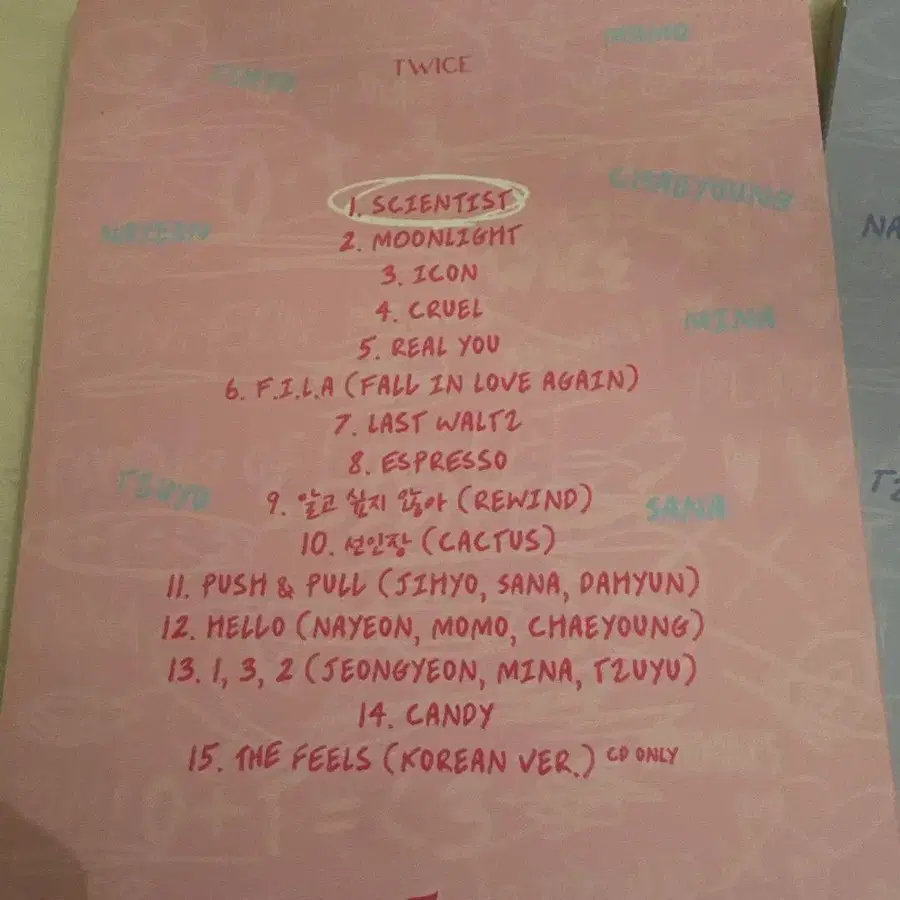 MOMO
TWICE
JIHYO
CHAEYOUNG
1. SCIENTIST
NAYEON
2. MOONLIGHT
3. ICON
4. CRUEL
MINA
5. REAL YOU
6. F.I.L.A (FALL IN LOVE AGAIN)
7. LAST WALTZ
8. ESPRESSO
TZUYU
9. 알고 싶지 않아 (REWIND)
SANA
10. 선인장 (CACTUS)
11. PUSH & PULL (JIHYO, SANA, DAHYUN)
12. HELLO (NAYEON, MOMO, CHAEYOUNG)
13. 1, 3, 2 (JEONGYEON, MINA, TZUYU)
14. CANDY
15. THE FEELS (KOREAN VER.) CD ONLY